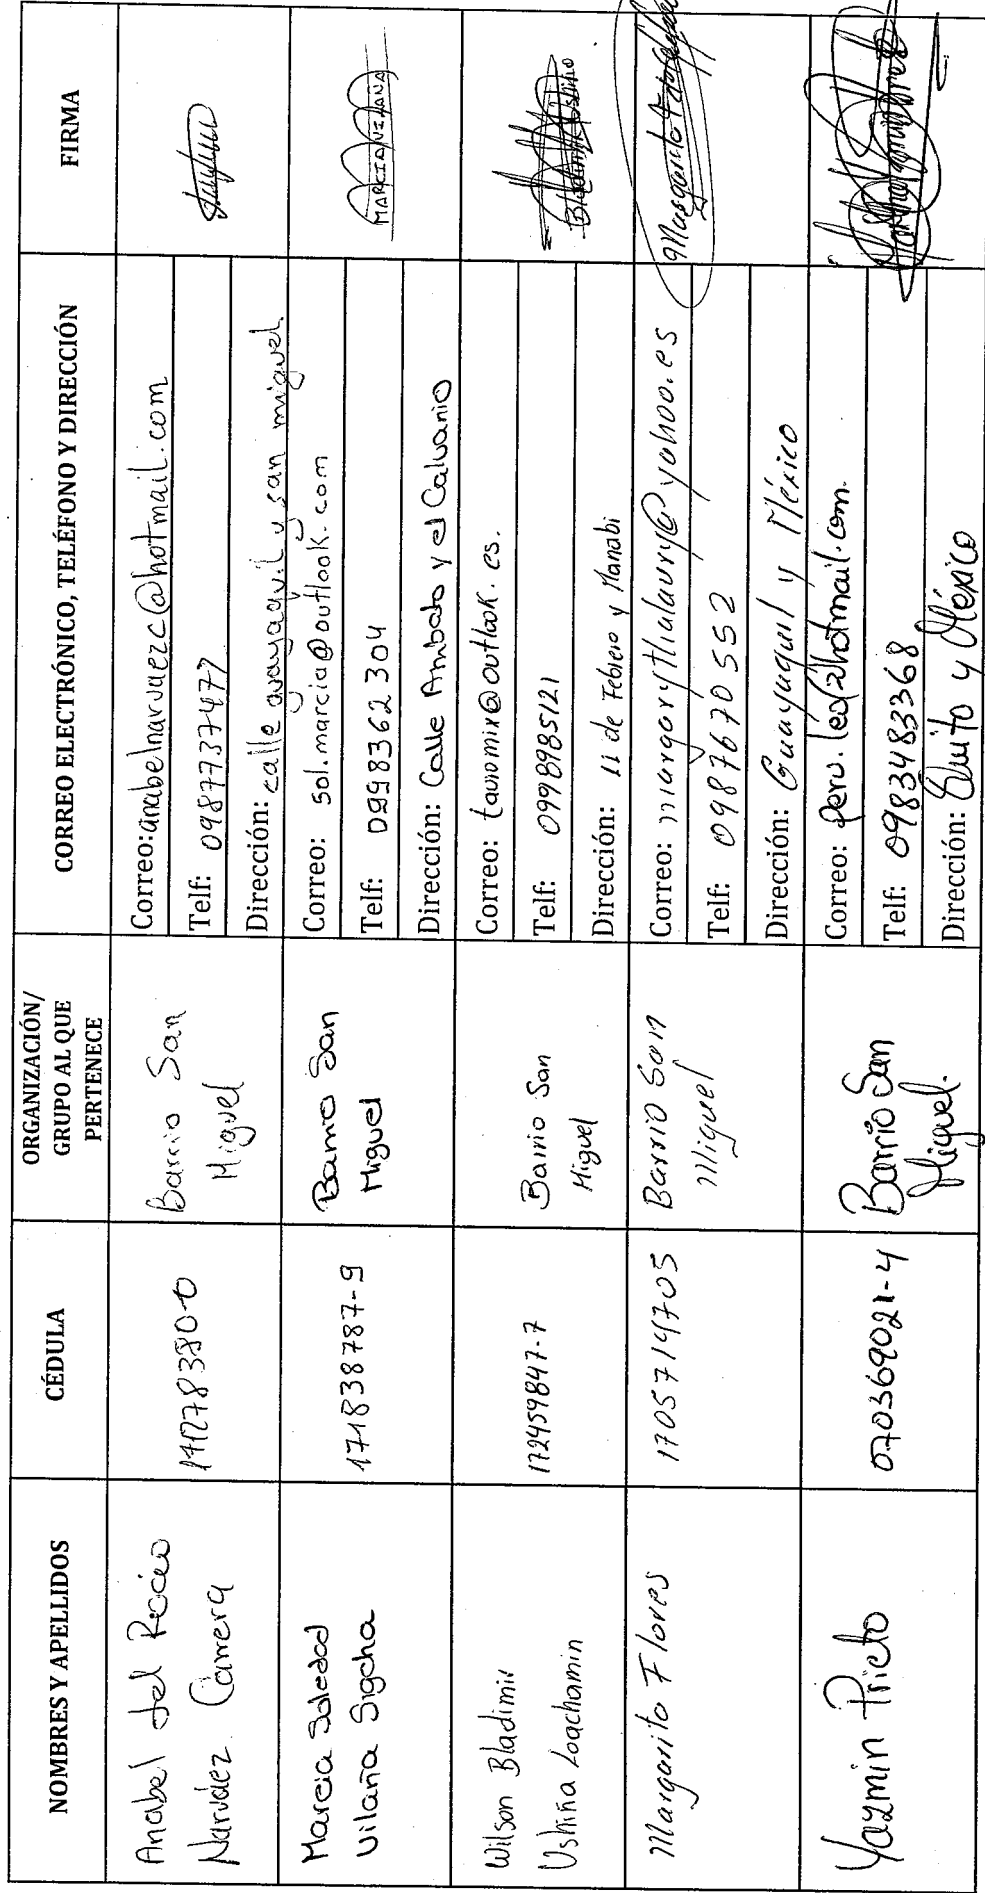 NOMBRES Y APELLIDOS
CÉDULA
ORGANIZACIÓN/
GRUPO AL QUE
PERTENECE
CORREO ELECTRÓNICO, TELÉFONO Y DIRECCIÓN
FIRMA
Anabel del Rocío
Narváez Carrera
Barrio San
Miguel
Correo: anabelnarvaezc@hotmail.com
Telf: 0987737477
Dirección: calle guayaquil y san miguel
Marcia Soledad
Vilaña Sigcha
171838787-9
Barrio San
Miguel
Correo: sol.marcia@outlook.com
Telf: 0998362304
Dirección: Calle Ambato y el Calvario
MARCIA VILAÑA
Wilson Bladimir
Ushiña Loachamin
172459847-7
Barrio San
Miguel
Correo: tauromix@outlook.es.
Telf: 0999985121
Dirección: 11 de Febrero y Manabi
Bladimir Ushiña
Margarita Flores
1705714705
Barrio San
Miguel
Correo: margorythlalaury@yahoo.es
Telf: 0987670552
Dirección: Guayaquil y México
Yazmin Prieto
070369021-4
Barrio San
Miguel.
Correo: peru.leo(2hotmail.com.
Telf: 0983483368
Dirección: Quito y México